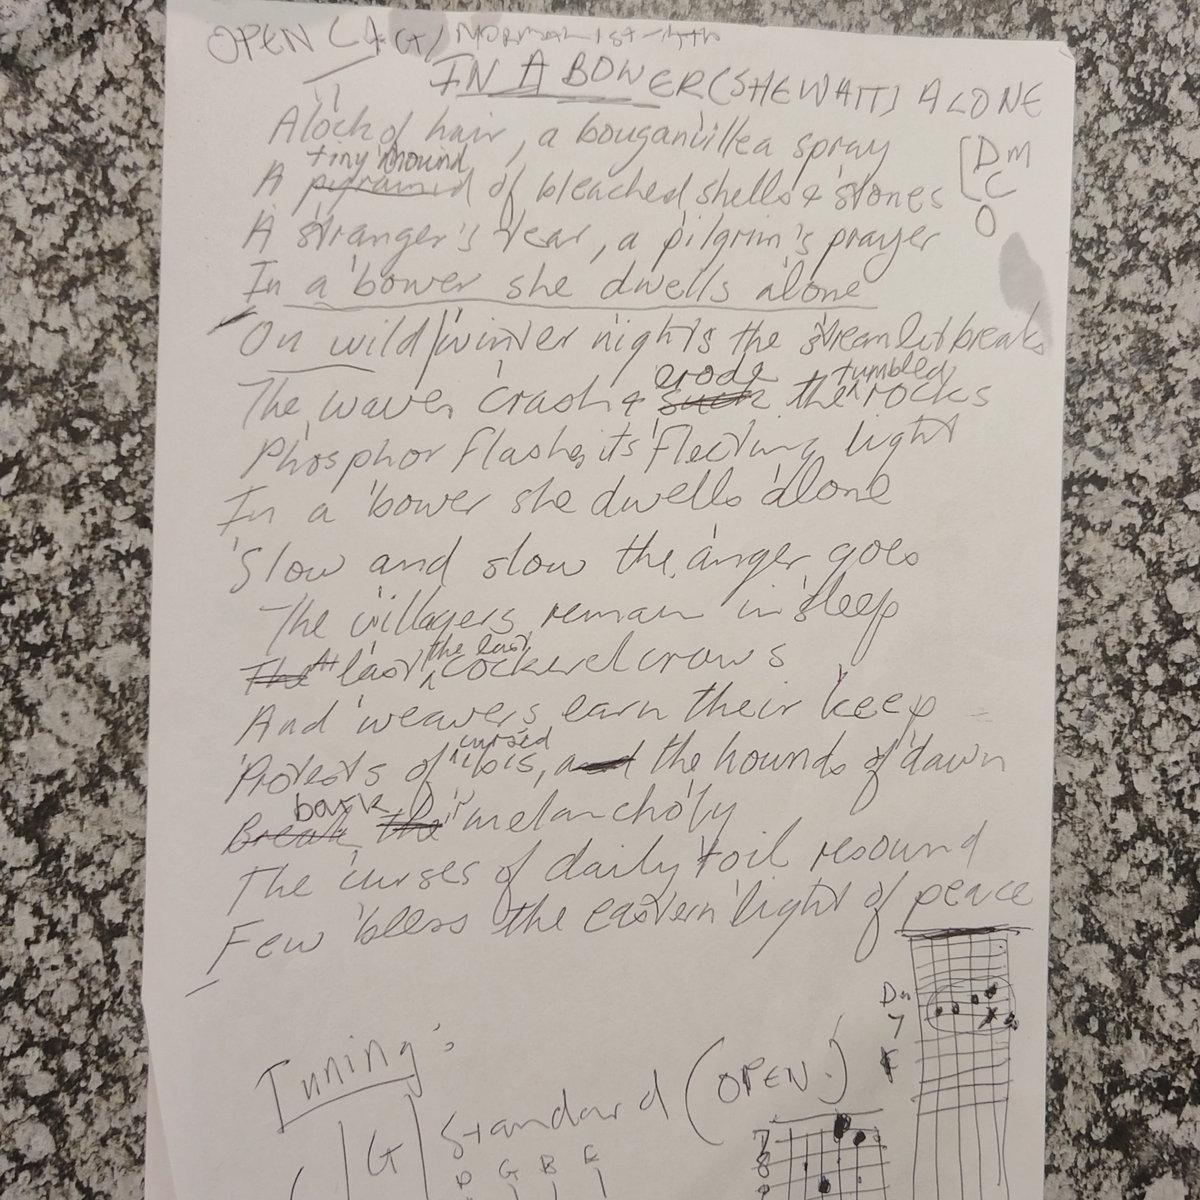 OPEN C
IN A BOWER (SHE WAITS) ALONE
A lock of hair, a bouganvillea spray
[Dm
tiny mound
A pyramid of bleached shells & stones
C
O
A stranger's tear, a pilgrim's prayer
In a bower she dwells alone
On wild winter nights the streamlet breaks
erode tumbled
The waves crash & suck the rocks
Phosphor flashes its fleeting light
In a bower she dwells alone
Slow and slow the anger goes
The villagers remain in sleep
the last
The At last cockerel crows
And weavers earn their keep
cursed
Protests of ibis, and the hounds of dawn
bark
Break the melancholy
The curses of daily toil resound
Few bless the eastern light of peace
Dm
7
Tuning:
Standard (OPEN)
G
D G B E
7
8
9